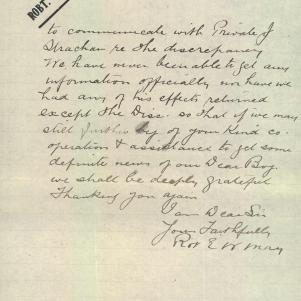 ROBT.
to communicate with Private J
Strachan re the discrepancy
We have never been able to get any
information officially nor have we
had any of his effects returned
except the Disc. so that if we may
still further by of your kind co.
operation & assistance to get some
definite news of our Dear Boy.
we shall be deeply grateful
Thanking you again
I am Dear Sir
Yours Faithfully
Robt E W